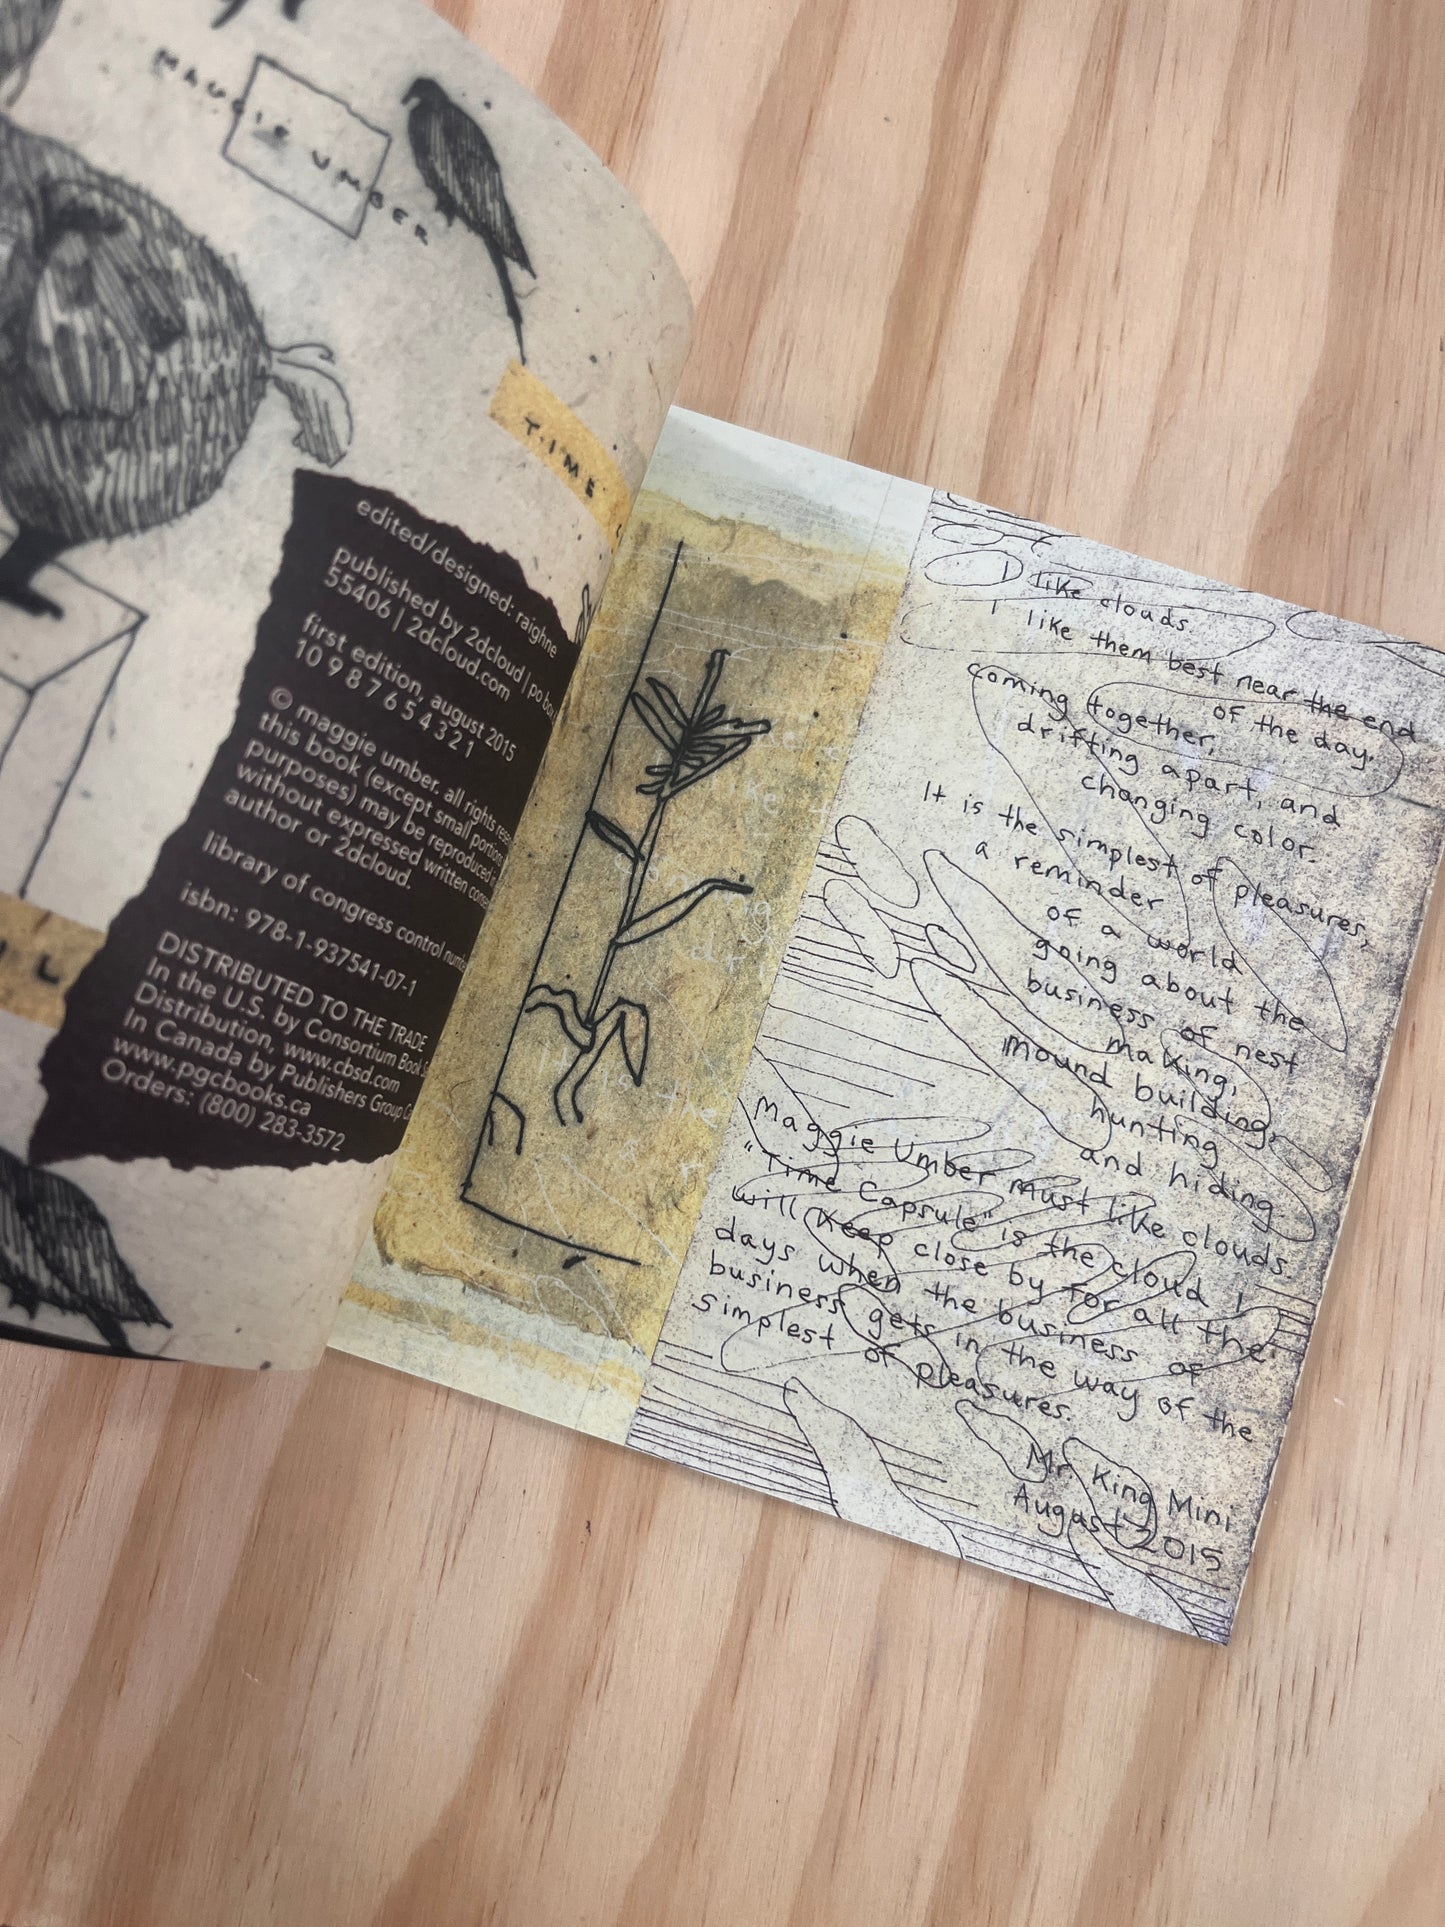 MAGGIE UMBER
TIME
edited/designed: raighne
published by 2dcloud | po box
55406 | 2dcloud.com
first edition, august 2015
10 9 8 7 6 5 4 3 2 1
© maggie umber. all rights
this book (except small portions
purposes) may be reproduced
without expressed written
author or 2dcloud.
library of congress control
isbn: 978-1-937541-07-1
DISTRIBUTED TO THE TRADE
In the U.S. by Consortium Book
Distribution, www.cbsd.com
In Canada by Publishers Group
www.pgcbooks.ca
Orders: (800) 283-3572
I like clouds.
I like them best near the end
of the day.
coming together,
drifting apart, and
changing color.
It is the simplest of pleasures,
a reminder
of a world
going about the
business of nest
making,
mound building,
hunting
and hiding.
Maggie Umber must like clouds.
"Time Capsule" is the cloud I
will keep close by for all the
days when the business of
business gets in the way of the
simplest of pleasures.
Mr. King Mini
August 2015